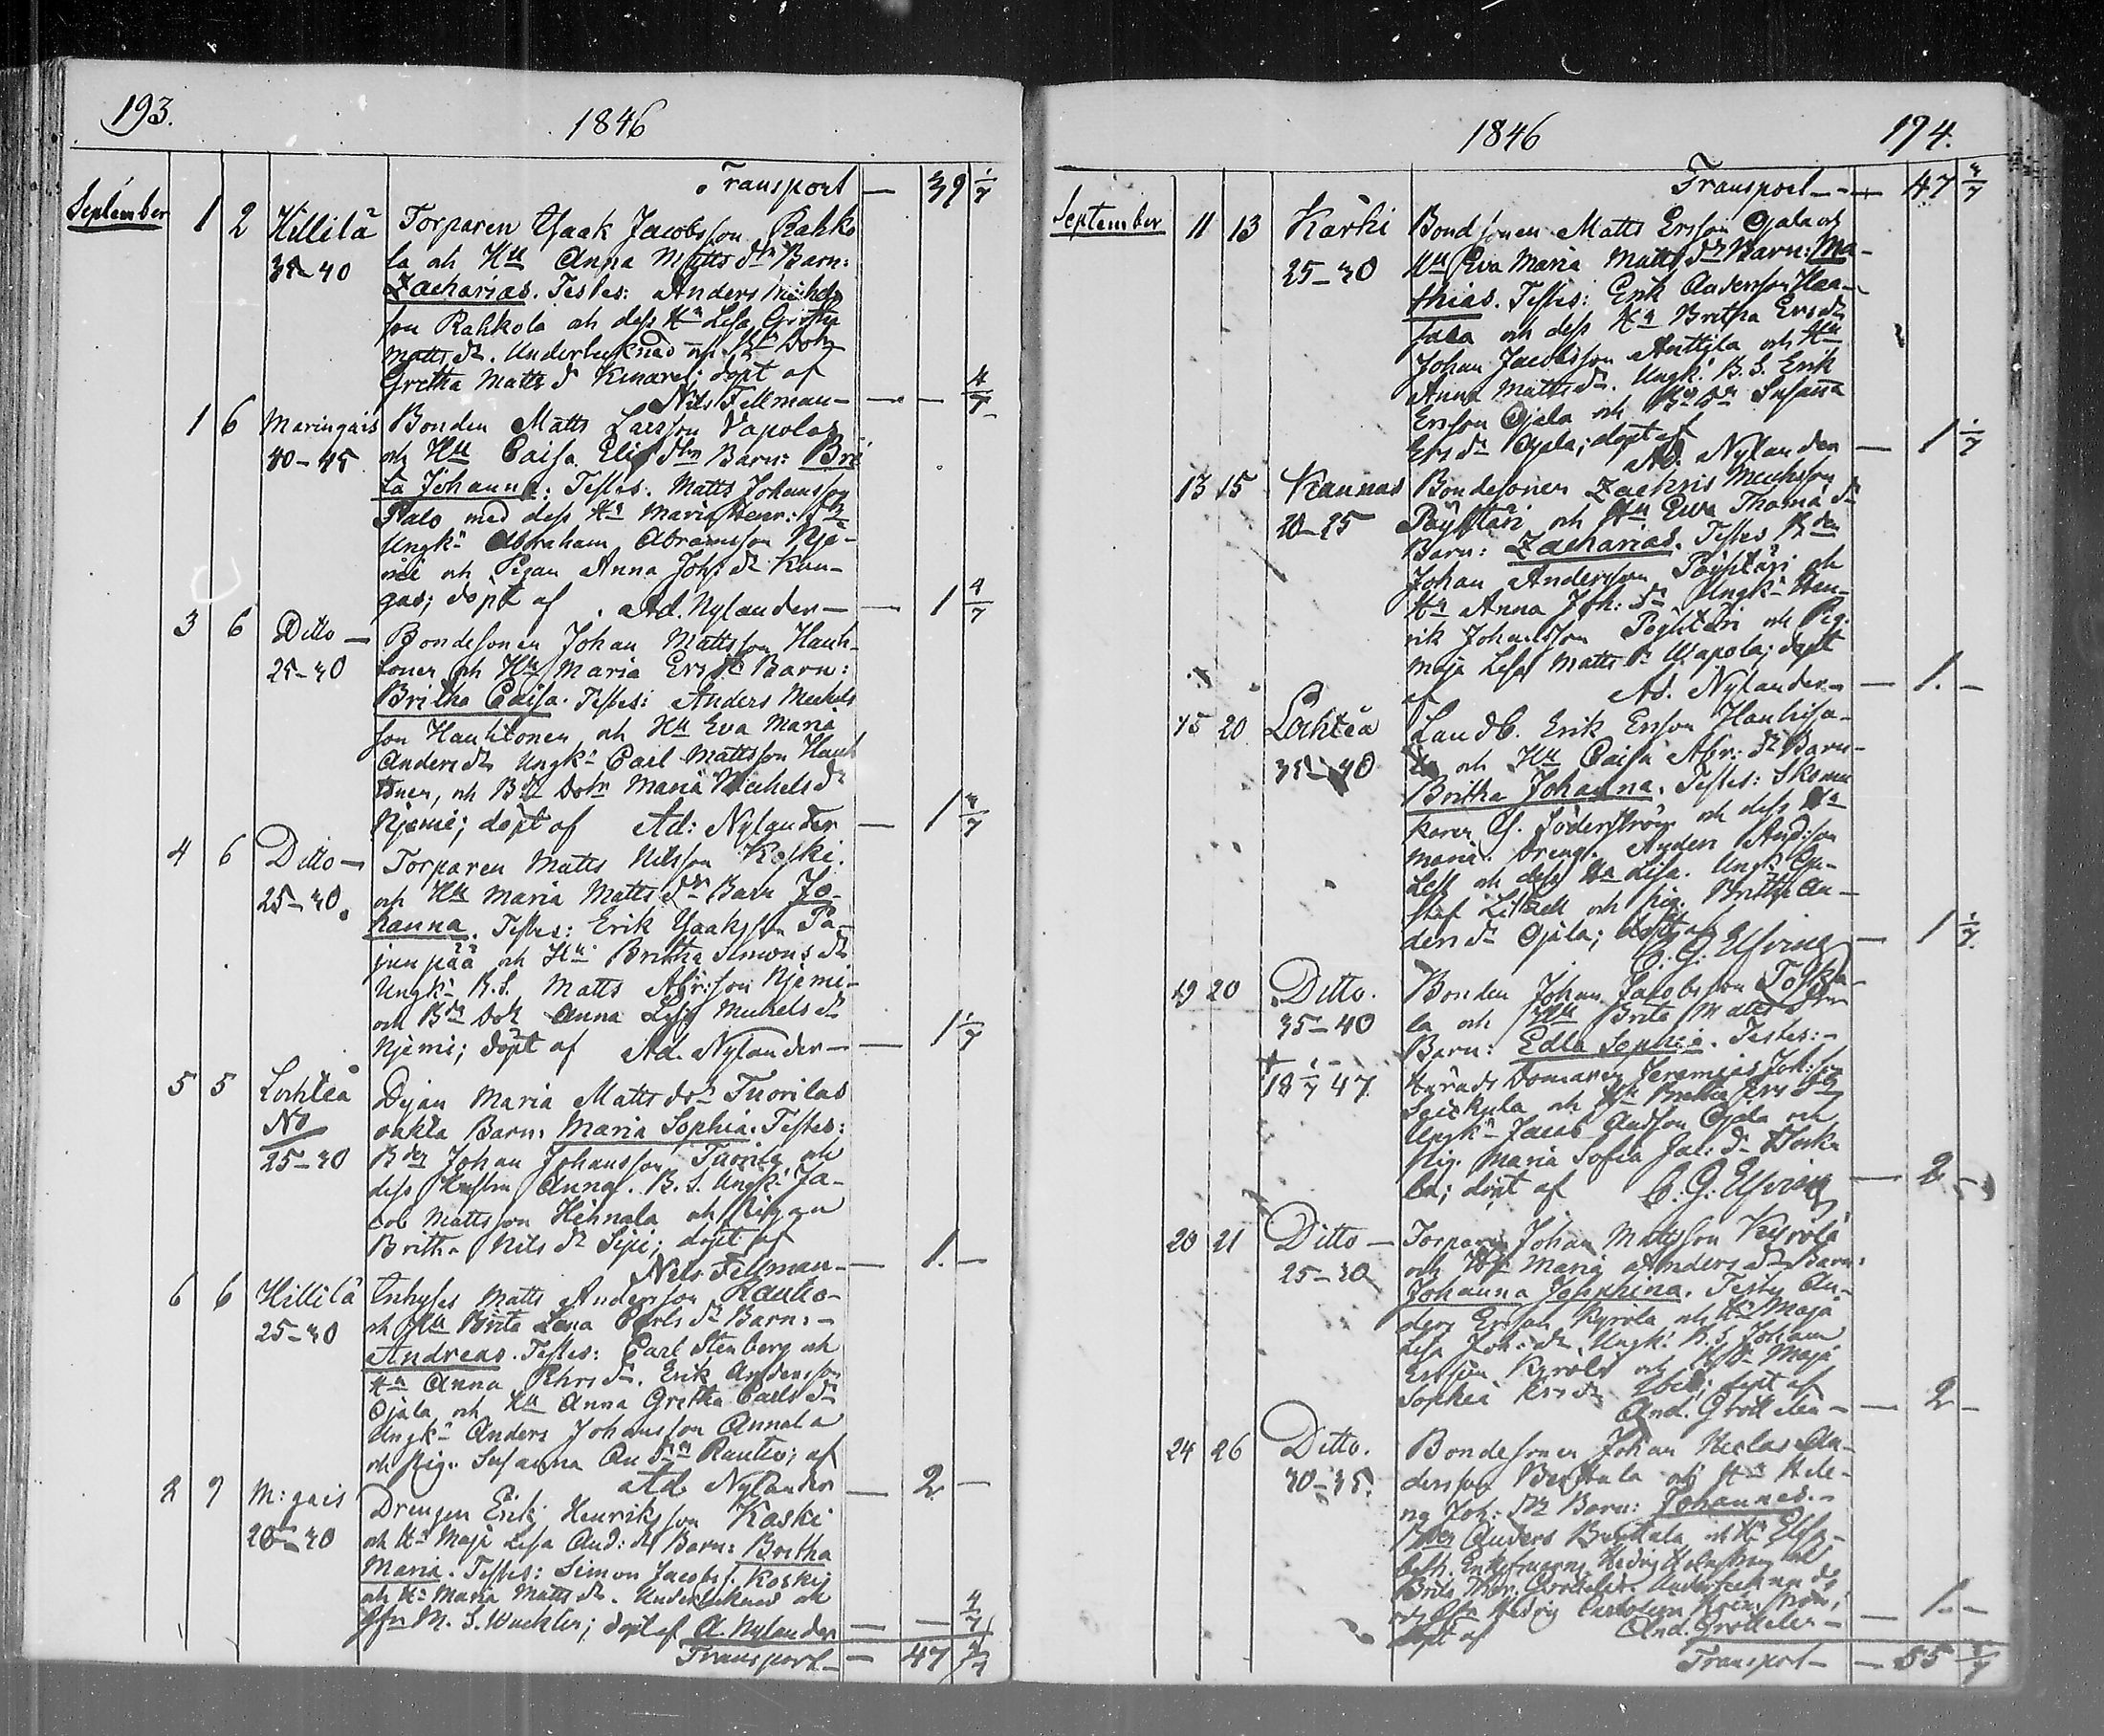 193.
1846
Transport — 39 1/7
September 1 2 Hillilä Torparen Isaak Jacobsson Rahko
35–40 la och Hu Anna Matts dr Barn:
Zacharias. Testes: Anders Michels
son Rahkola och dess Ha Lisa Gretha
Matts dr. Undertecknad
Gretha Matts d ; döpt af
Nils Fellman — — 4/7
1 6 Maringais Bonden Matts Larsson Vapola
40–45 och Hu Caisa Elis dtr Barn: Bri
ta Johanna. Testes: Matts Johansson
Palo med dess Ha Maria Henr: dr
Ungk: Abraham Abramsson Nje-
mi och Pigan Anna Joh: dr Kan-
gas; döpt af Ad. Nylander — 1 4/7
3 6 Ditto — Bondesonen Johan Mattsson Hauh-
25–30 tonen och Hu Maria Ers dr Barn:
Britha Caisa. Testes: Anders Michels
son Hauhtonen och Hu Eva Maria
Anders dr Ungk: Carl Mattsson Hauh
tonen, och Bde Dotr Maria Michels dr
Njemi; döpt af Ad: Nylander — 1 3/7
4 6 Ditto — Torparen Matts Nilsson Koski
25–30. och Hu Maria Matts dr Barn Jo-
hanna. Testes: Erik Isaaksson Pa-
junpää och Hu Britha Simons dr
Ungk: B.S. Matts Abr:son Njemi
och Bde Dotr Anna Lisa Michels dr
Njemi; döpt af Ad. Nylander — 1 1/7
5 5 Lochteå Pigan Maria Matts dotr Tuorilas
No oäkta Barn: Maria Sophia. Testes:
25–30 Bden Johan Johansson Tuorila och
dess Hustru Anna. B.S. Ungk: Ja-
cob Mattsson Hihnala och Pigan
Britha Nils dr Sipi; döpt af
Nils Fellman — 1. —
6 6 Hillilä Inhyses Matts Andersson Rautio
25–30 och Hu Brita Lena Carls dr Barn: –
Andreas. Testes: Carl Stenberg och
Ha Anna dr. Erik Andersson
Ojala och Hu Anna Gretha Carls dr
Ungk: Anders Johansson Annala
och Pig. Susanna An dr Rautio; af
Ad. Nylander — 2 —
2 9 M:gais Drengen Erik Henriksson Koski
20–30 och Ha Maja Lisa And: dr Barn: Britha
Maria. Testes: Simon Jacobs s. Koski
och Ha Maria Matts dr. Undertecknad och
M. S. ; döpt af A. Nylander — — 4/7
Transport — 47 3/7
1846
194.
Transport — 47 3/7
September 11 13 Karhi Bondsonen Matts Ersson Ojala och
25–30 Hu Eva Maria Matts dr Barn: Ma-
thias. Testes: Erik Andersson Haa-
pala och dess Ha Britha Ers dr
Johan Jacobsson Anttila och Hu
Anna Matts dr. Ungk: B.S. Erik
Ersson Ojala och Susanna
Ers dr Ojala; döpt af
Ad. Nylander — 1 1/7
13 15 Kannus Bondesonen Zachris Michsson
20–25 Pöyhtäri och Hu Ewa Thoma dr
Barn: Zacharias. Testes Bden
Johan Andersson Pöyhtäri och
Ha Anna Joh: dr Ungk: Hen-
rik Johansson Pöyhtäri och Pig:
Maja Lisa Matts dr Wapola; döpt
af Ad. Nylander — 1. —
15 20 Lochteå Landb. Erik Ersson Hanhisa-
35–40 lo och Hu Caisa Abr: dr Barn –
Britha Johanna. Testes: Skoma
karen Söderström och dess Ha
Maria. Dreng. Anders And:son
och dess Ha Lisa. Ungk Gu-
staf och pig. Britha An-
ders dr Ojala; döpt af
C. G. Elfving — 1 1/7
19 20 Ditto. Bonden Johan Jacobsson Toska-
35–40 la och Hu Brita Matts dr
Barn: Edla Sophia. Testes: –
† 18 1/7 47. Härads Domaren Jeremias Joh:son
och Hu Britha Ers dr
Ungk: Jacob Andsson Ojala och
Pig. Maria Sofia Jac: dr
la; döpt af C. G. Elfving — 2 –
20 21 Ditto — Torparen Johan Mattsson Kyrölä
25–30 och Hu Maria Anders dr Barn:
Johanna Josephina. Testes An-
ders Ersson Kyrölä och Ha Maja
Lisa Joh: dr Ungk: B.S. Johan
Ersson Kyrölä och Maja
Sophia Ers dr ibid; döpt af
And. Grötelin — 2 –
24 26 Ditto. Bondesonen Johan Niclas An-
30–35. dersson Berttula och Ha Hele-
na Joh: dr Barn: Johannes. –
Bden Anders Berttula och Ha Elsa-
beth. Enkefruarna Hedvig och
Brita Grötelin. Undertecknade
och Hedvig Carolina ;
döpt af And. Grötelin — 1. —
Transport — 55 1/7